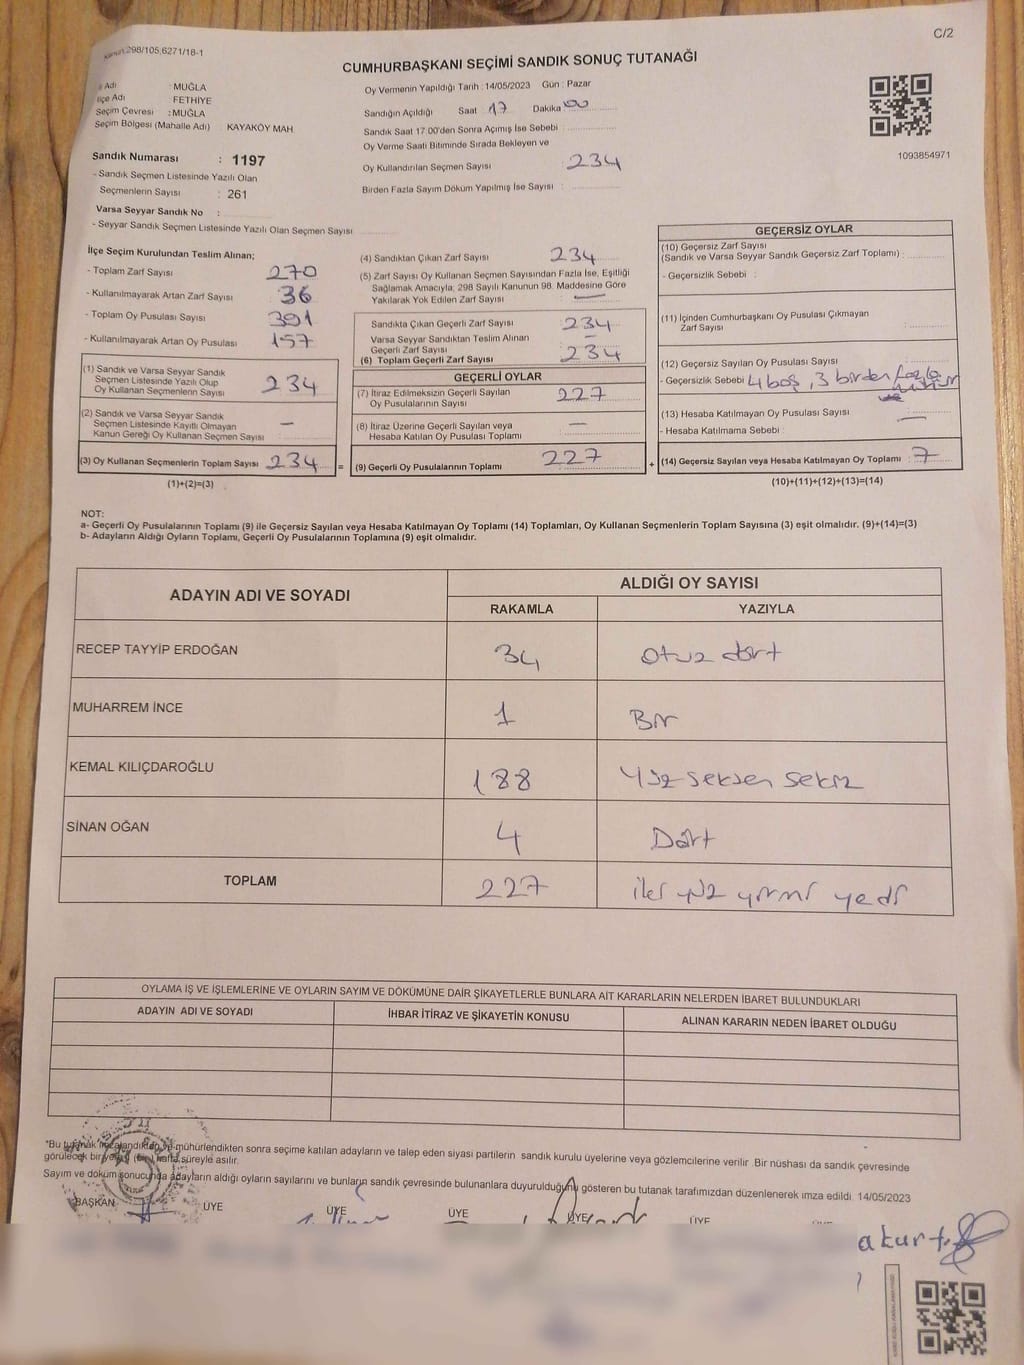 Kanun 298/105,6271/18-1
C/2
CUMHURBAŞKANI SEÇİMİ SANDIK SONUÇ TUTANAĞI
İl Adı : MUĞLA
İlçe Adı FETHİYE
Seçim Çevresi : MUĞLA
Seçim Bölgesi (Mahalle Adı) KAYAKÖY MAH
Sandık Numarası : 1197
- Sandık Seçmen Listesinde Yazılı Olan
Seçmenlerin Sayısı : 261
Varsa Seyyar Sandık No :
- Seyyar Sandık Seçmen Listesinde Yazılı Olan Seçmen Sayısı
Oy Vermenin Yapıldığı Tarih : 14/05/2023 Gün : Pazar
Sandığın Açıldığı Saat 17 Dakika 00
Sandık Saat 17.00'den Sonra Açımış İse Sebebi :
Oy Verme Saati Bitiminde Sırada Bekleyen ve
Oy Kullandırılan Seçmen Sayısı : 234
Birden Fazla Sayım Döküm Yapılmış İse Sayısı :
1093854971
İlçe Seçim Kurulundan Teslim Alınan;
- Toplam Zarf Sayısı : 270
- Kullanılmayarak Artan Zarf Sayısı : 36
- Toplam Oy Pusulası Sayısı : 391
- Kullanılmayarak Artan Oy Pusulası : 157
(1) Sandık ve Varsa Seyyar Sandık
Seçmen Listesinde Yazılı Olup
Oy Kullanan Seçmenlerin Sayısı : 234
(2) Sandık ve Varsa Seyyar Sandık
Seçmen Listesinde Kayıtlı Olmayan
Kanun Gereği Oy Kullanan Seçmen Sayısı : —
(3) Oy Kullanan Seçmenlerin Toplam Sayısı : 234
(1)+(2)=(3)
(4) Sandıktan Çıkan Zarf Sayısı : 234
(5) Zarf Sayısı Oy Kullanan Seçmen Sayısından Fazla İse, Eşitliği
Sağlamak Amacıyla, 298 Sayılı Kanunun 98. Maddesine Göre
Yakılarak Yok Edilen Zarf Sayısı : —
Sandıkta Çıkan Geçerli Zarf Sayısı : 234
Varsa Seyyar Sandıktan Teslim Alınan
Geçerli Zarf Sayısı : —
(6) Toplam Geçerli Zarf Sayısı : 234
GEÇERLİ OYLAR
(7) İtiraz Edilmeksizin Geçerli Sayılan
Oy Pusulalarının Sayısı : 227
(8) İtiraz Üzerine Geçerli Sayılan veya
Hesaba Katılan Oy Pusulası Toplamı : —
= (9) Geçerli Oy Pusulalarının Toplamı : 227
GEÇERSİZ OYLAR
(10) Geçersiz Zarf Sayısı
(Sandık ve Varsa Seyyar Sandık Geçersiz Zarf Toplamı) :
- Geçersizlik Sebebi :
(11) İçinden Cumhurbaşkanı Oy Pusulası Çıkmayan
Zarf Sayısı :
(12) Geçersiz Sayılan Oy Pusulası Sayısı :
- Geçersizlik Sebebi : 4 boş, 3 birden fazla
mühür
(13) Hesaba Katılmayan Oy Pusulası Sayısı : —
- Hesaba Katılmama Sebebi :
+ (14) Geçersiz Sayılan veya Hesaba Katılmayan Oy Toplamı : 7
(10)+(11)+(12)+(13)=(14)
NOT:
a- Geçerli Oy Pusulalarının Toplamı (9) ile Geçersiz Sayılan veya Hesaba Katılmayan Oy Toplamı (14) Toplamları, Oy Kullanan Seçmenlerin Toplam Sayısına (3) eşit olmalıdır. (9)+(14)=(3)
b- Adayların Aldığı Oyların Toplamı, Geçerli Oy Pusulalarının Toplamına (9) eşit olmalıdır.
ADAYIN ADI VE SOYADI ALDIĞI OY SAYISI
RAKAMLA YAZIYLA
RECEP TAYYİP ERDOĞAN 34 otuz dört
MUHARREM İNCE 1 Bir
KEMAL KILIÇDAROĞLU 188 yüz seksen sekiz
SİNAN OĞAN 4 Dört
TOPLAM 227 iki yüz yirmi yedi
OYLAMA İŞ VE İŞLEMLERİNE VE OYLARIN SAYIM VE DÖKÜMÜNE DAİR ŞİKAYETLERLE BUNLARA AİT KARARLARIN NELERDEN İBARET BULUNDUKLARI
ADAYIN ADI VE SOYADI İHBAR İTİRAZ VE ŞİKAYETİN KONUSU ALINAN KARARIN NEDEN İBARET OLDUĞU
*Bu tutanak imzalandıktan ve mühürlendikten sonra seçime katılan adayların ve talep eden siyasi partilerin sandık kurulu üyelerine veya gözlemcilerine verilir. Bir nüshası da sandık çevresinde
görülecek bir yere (bir) hafta süreyle asılır.
Sayım ve döküm sonucunda adayların aldığı oyların sayılarını ve bunların sandık çevresinde bulunanlara duyurulduğunu gösteren bu tutanak tarafımızdan düzenlenerek imza edildi. 14/05/2023
BAŞKAN ÜYE ÜYE ÜYE ÜYE ÜYE
akurt